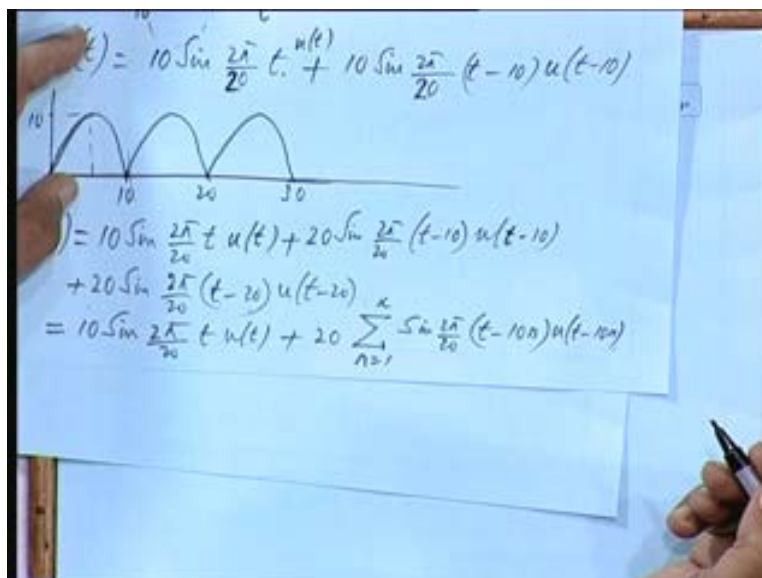 (t) = 10 Sin 2π/20 t. u(t) + 10 Sin 2π/20 (t-10) u(t-10)
10
10 20 30
) = 10 Sin 2π/20 t u(t) + 20 Sin 2π/20 (t-10) u(t-10)
+ 20 Sin 2π/20 (t-20) u(t-20)
= 10 Sin 2π/20 t u(t) + 20 ∑_{n=1}^{∝} Sin 2π/20 (t-10n) u(t-10n)